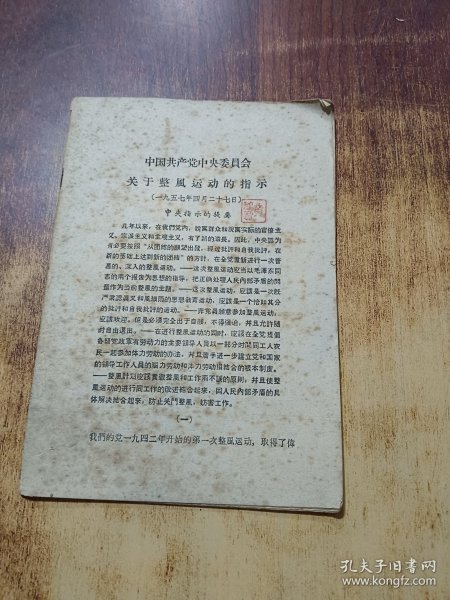 中国共产党中央委員会
关于整風运动的指示
(一九五七年四月二十七日)
中央指示的提要
几年以来，在我們党内，脫离群众和脫离实际的官僚主
义、宗派主义和主观主义，有了新的滋长。因此，中央認为
有必要按照“从团結的願望出发，經过批評和自我批評，在
新的基础上达到新的团結”的方針，在全党重新进行一次普
遍的、深入的整風运动。——这次整風运动应当以毛澤东同
志的兩个报告为思想的指导，把正确处理人民内部矛盾的問
題作为当前整風的主題。——这次整風运动，应該是一次既
严肃認真又和風細雨的思想教育运动，应該是一个恰如其分
的批評和自我批評的运动。——非党員願意参加整風运动，
应該欢迎。但是必須完全出于自願，不得强迫，并且允許随
时自由退出。——在进行整風运动的同时，应該在全党提倡
各級党政軍有劳动力的主要領导人員以一部分时間同工人农
民一起参加体力劳动的办法，并且着手逐步建立党和国家
的領导工作人員的脑力劳动和体力劳动相結合的根本制度。
——整風計划应該貫徹整風和工作兩不誤的原則，并且使整
風运动的进行同工作的改进結合起来，同人民内部矛盾的具
体解决結合起来，防止关門整風，妨害工作。
(一)
我們的党一九四二年开始的第一次整風运动，取得了偉
孔夫子旧书网
www.kongfz.com